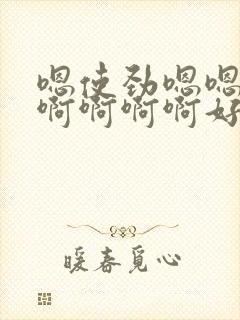 嗯使劲嗯嗯
啊啊啊啊好
暖春觅心